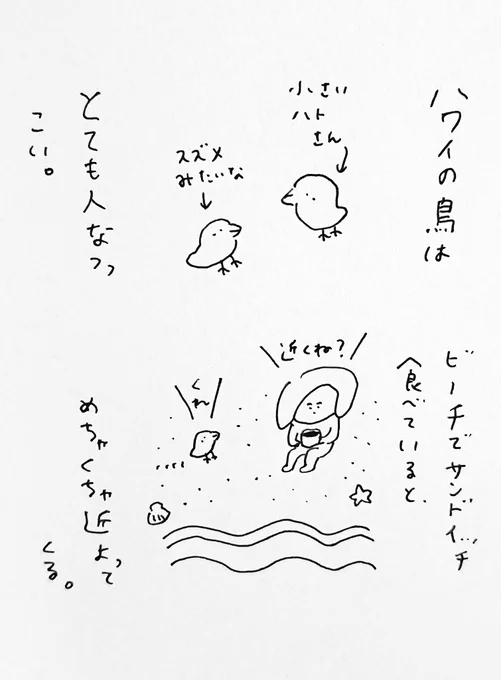 ハワイの鳥は
小さい
ハト
さん
スズメ
みたいな
とても人なつっ
こい。
ビーチでサンドイッチ
食べていると、
近くね?
くれ
めちゃくちゃ近よって
くる。